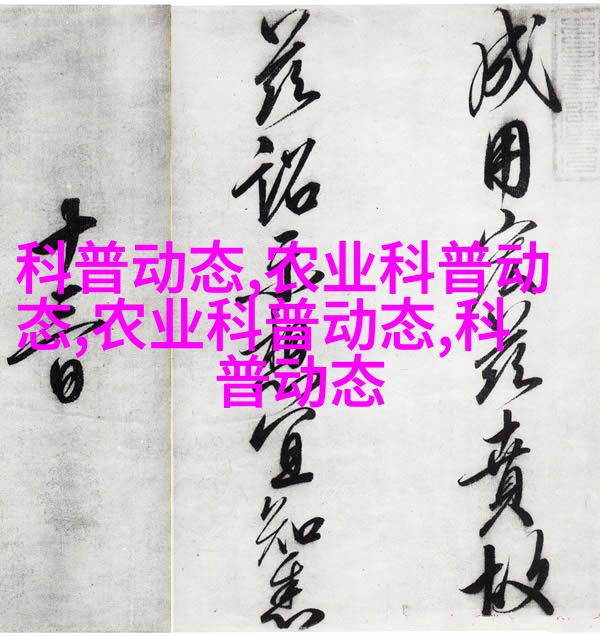 科普动态,农业科普动
态,农业科普动态,科
普动态
成用宏茲賁故
茲詔示想宜知悉
十日